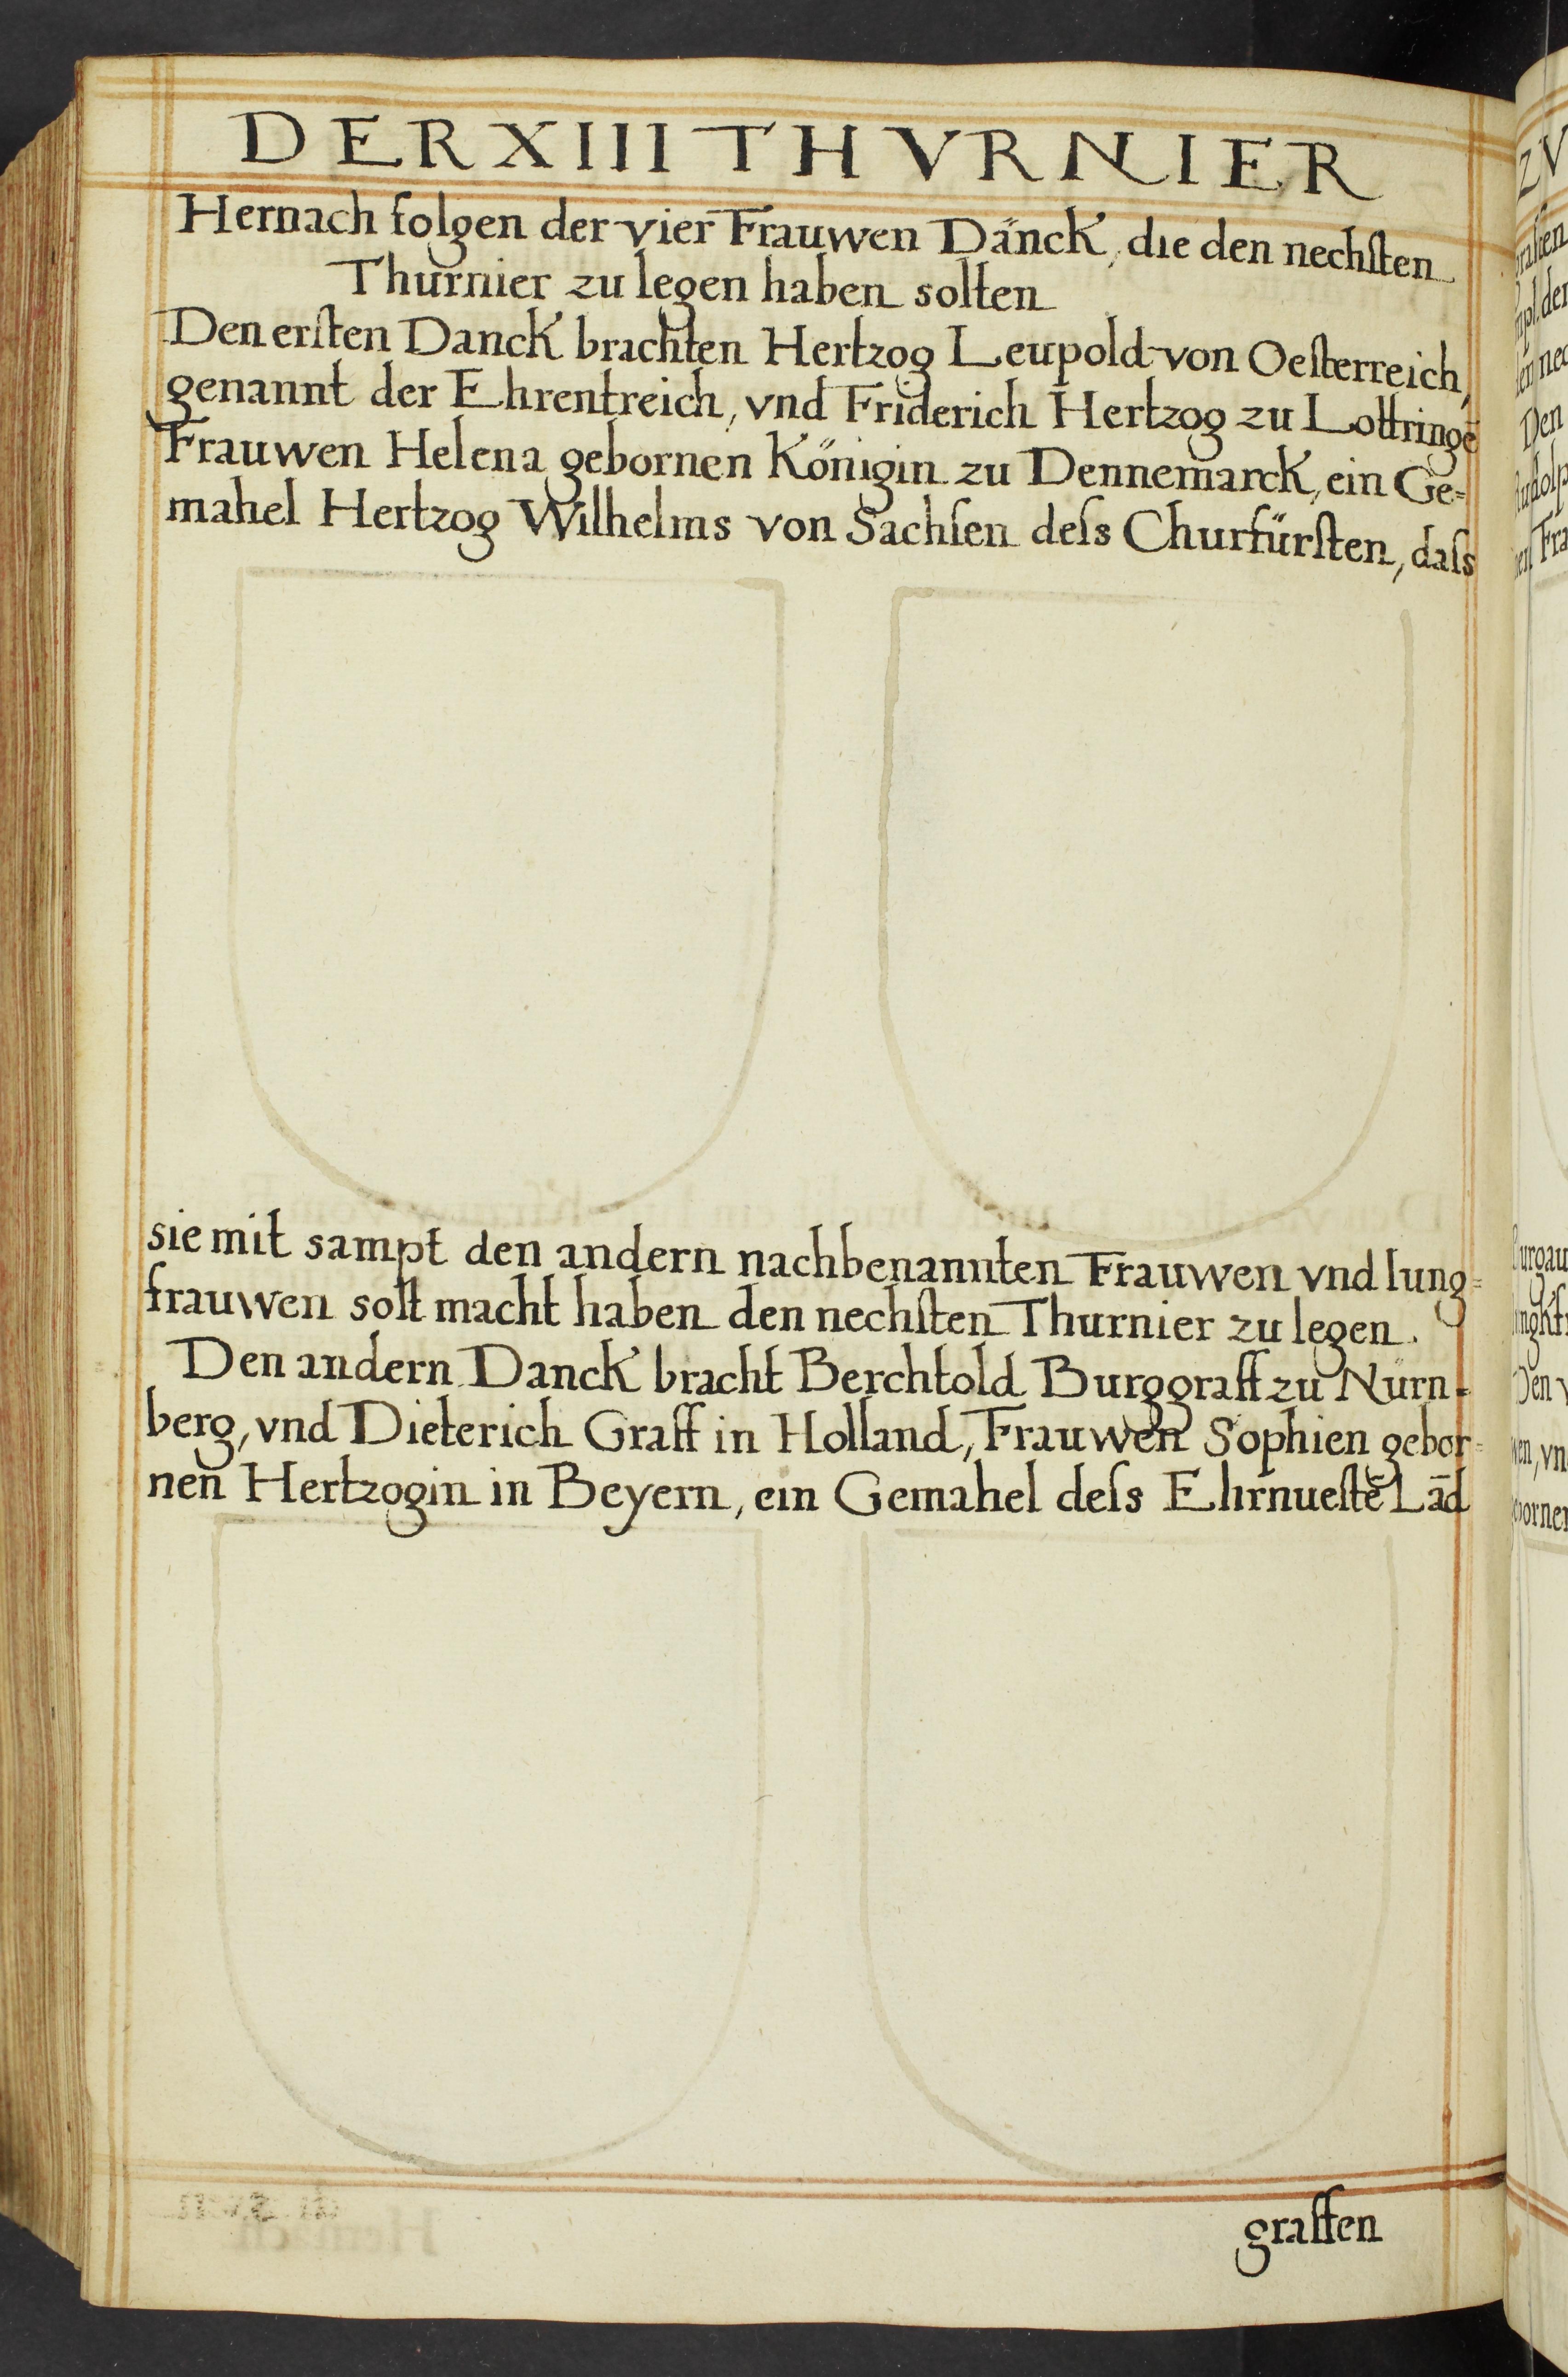 DER XIII THVRNIER
Hernach folgen der vier Frauwen Dänck, die den nechſten
Thurnier zu legen haben solten
Den erſten Danck brachten Hertzog Leupold von Oeſterreich,
genannt der Ehrentreich, vnd Friderich Hertzog zu Lottringē
Frauwen Helena gebornen Königin zu Dennemarck, ein Ge=
mahel Hertzog Wilhelms von Sachſen deſs Churfürſten, daſs
sie mit sampt den andern nachbenannten Frauwen vnd Iung=
frauwen solt macht haben den nechſten Thurnier zu legen.
Den andern Danck bracht Berchtold Burggraff zu Nürn=
berg, vnd Dieterich Graff in Holland, Frauwen Sophien gebor=
nen Hertzogin in Beyern, ein Gemahel deſs Ehrnueſtē Lād
graffen
ZV
Den